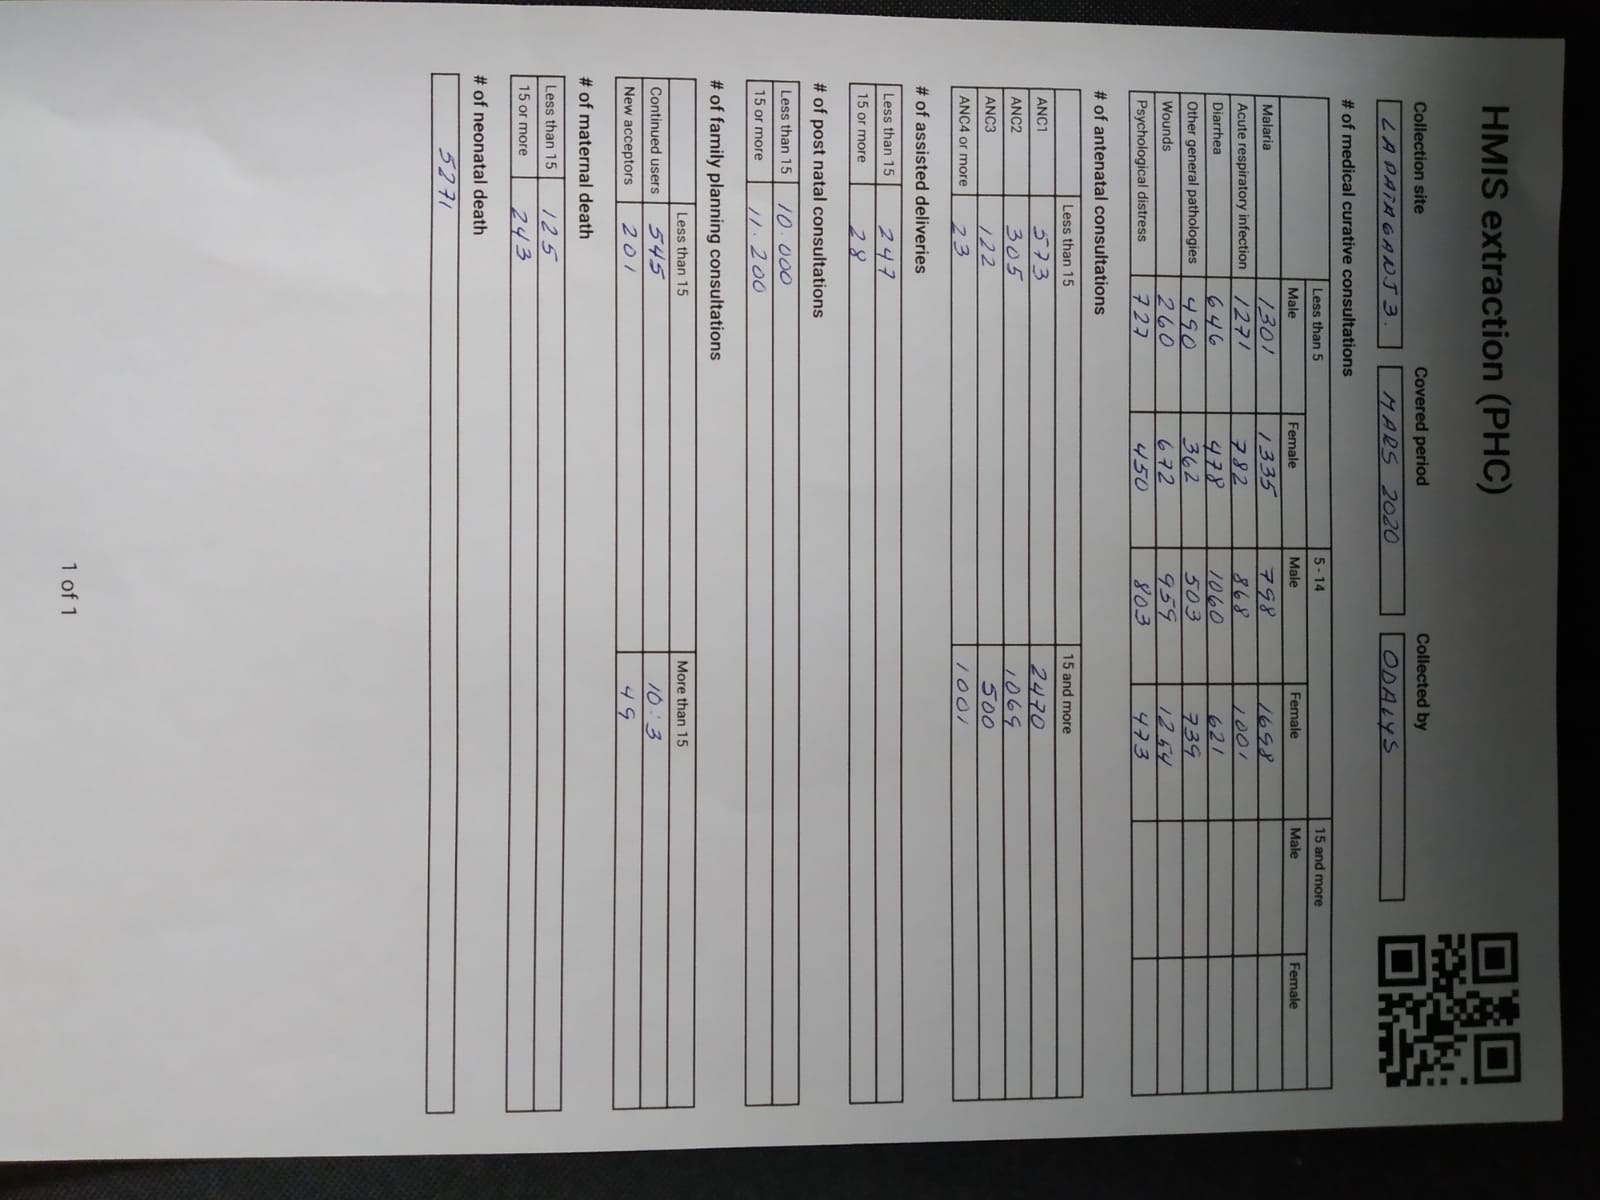 HMIS extraction (PHC)
Collection site Covered period Collected by
MARS 2020 ODALYS
# of medical curative consultations
Less than 5 5 - 14 15 and more
Male Female Male Female Male Female
Malaria 1301 1335 798 1698
Acute respiratory infection 1271 782 868 1001
Diarrhea 646 478 1060 621
Other general pathologies 490 362 503 739
Wounds 260 672 959 1254
Psychological distress 727 450 803 473
# of antenatal consultations
Less than 15 15 and more
ANC1 573 2470
ANC2 305 1069
ANC3 122 500
ANC4 or more 23 1001
# of assisted deliveries
Less than 15 247
15 or more 28
# of post natal consultations
Less than 15 10.000
15 or more 11.200
# of family planning consultations
Less than 15 More than 15
Continued users 545 10:3
New acceptors 201 49
# of maternal death
Less than 15 125
15 or more 243
# of neonatal death
5271
1 of 1